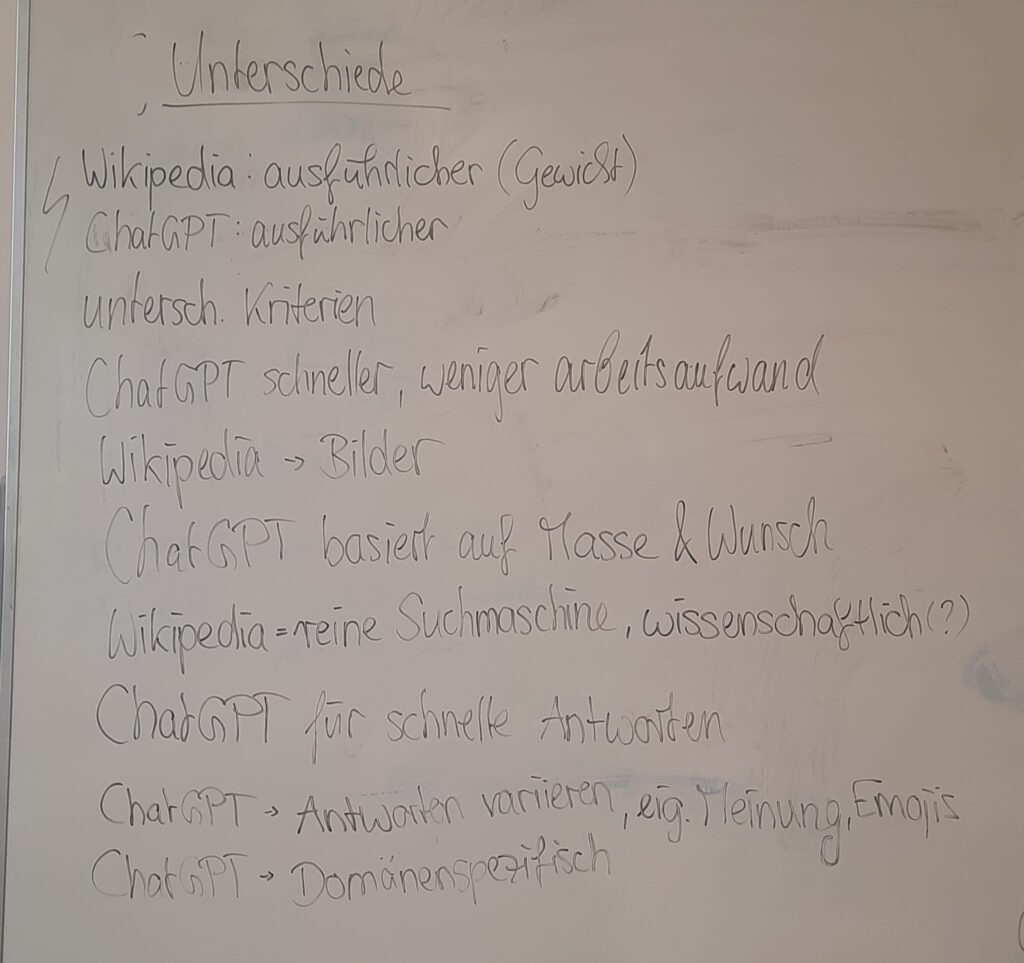 Unterschiede
Wikipedia: ausführlicher (Gewicht)
ChatGPT: ausführlicher
untersch. Kriterien
ChatGPT schneller, weniger arbeitsaufwand
Wikipedia → Bilder
ChatGPT basiert auf Masse & Wunsch
Wikipedia = reine Suchmaschine, wissenschaftlich(?)
ChatGPT für schnelle Antworten
ChatGPT → Antworten variieren, eig. Meinung, Emojis
ChatGPT → Domänenspezifisch